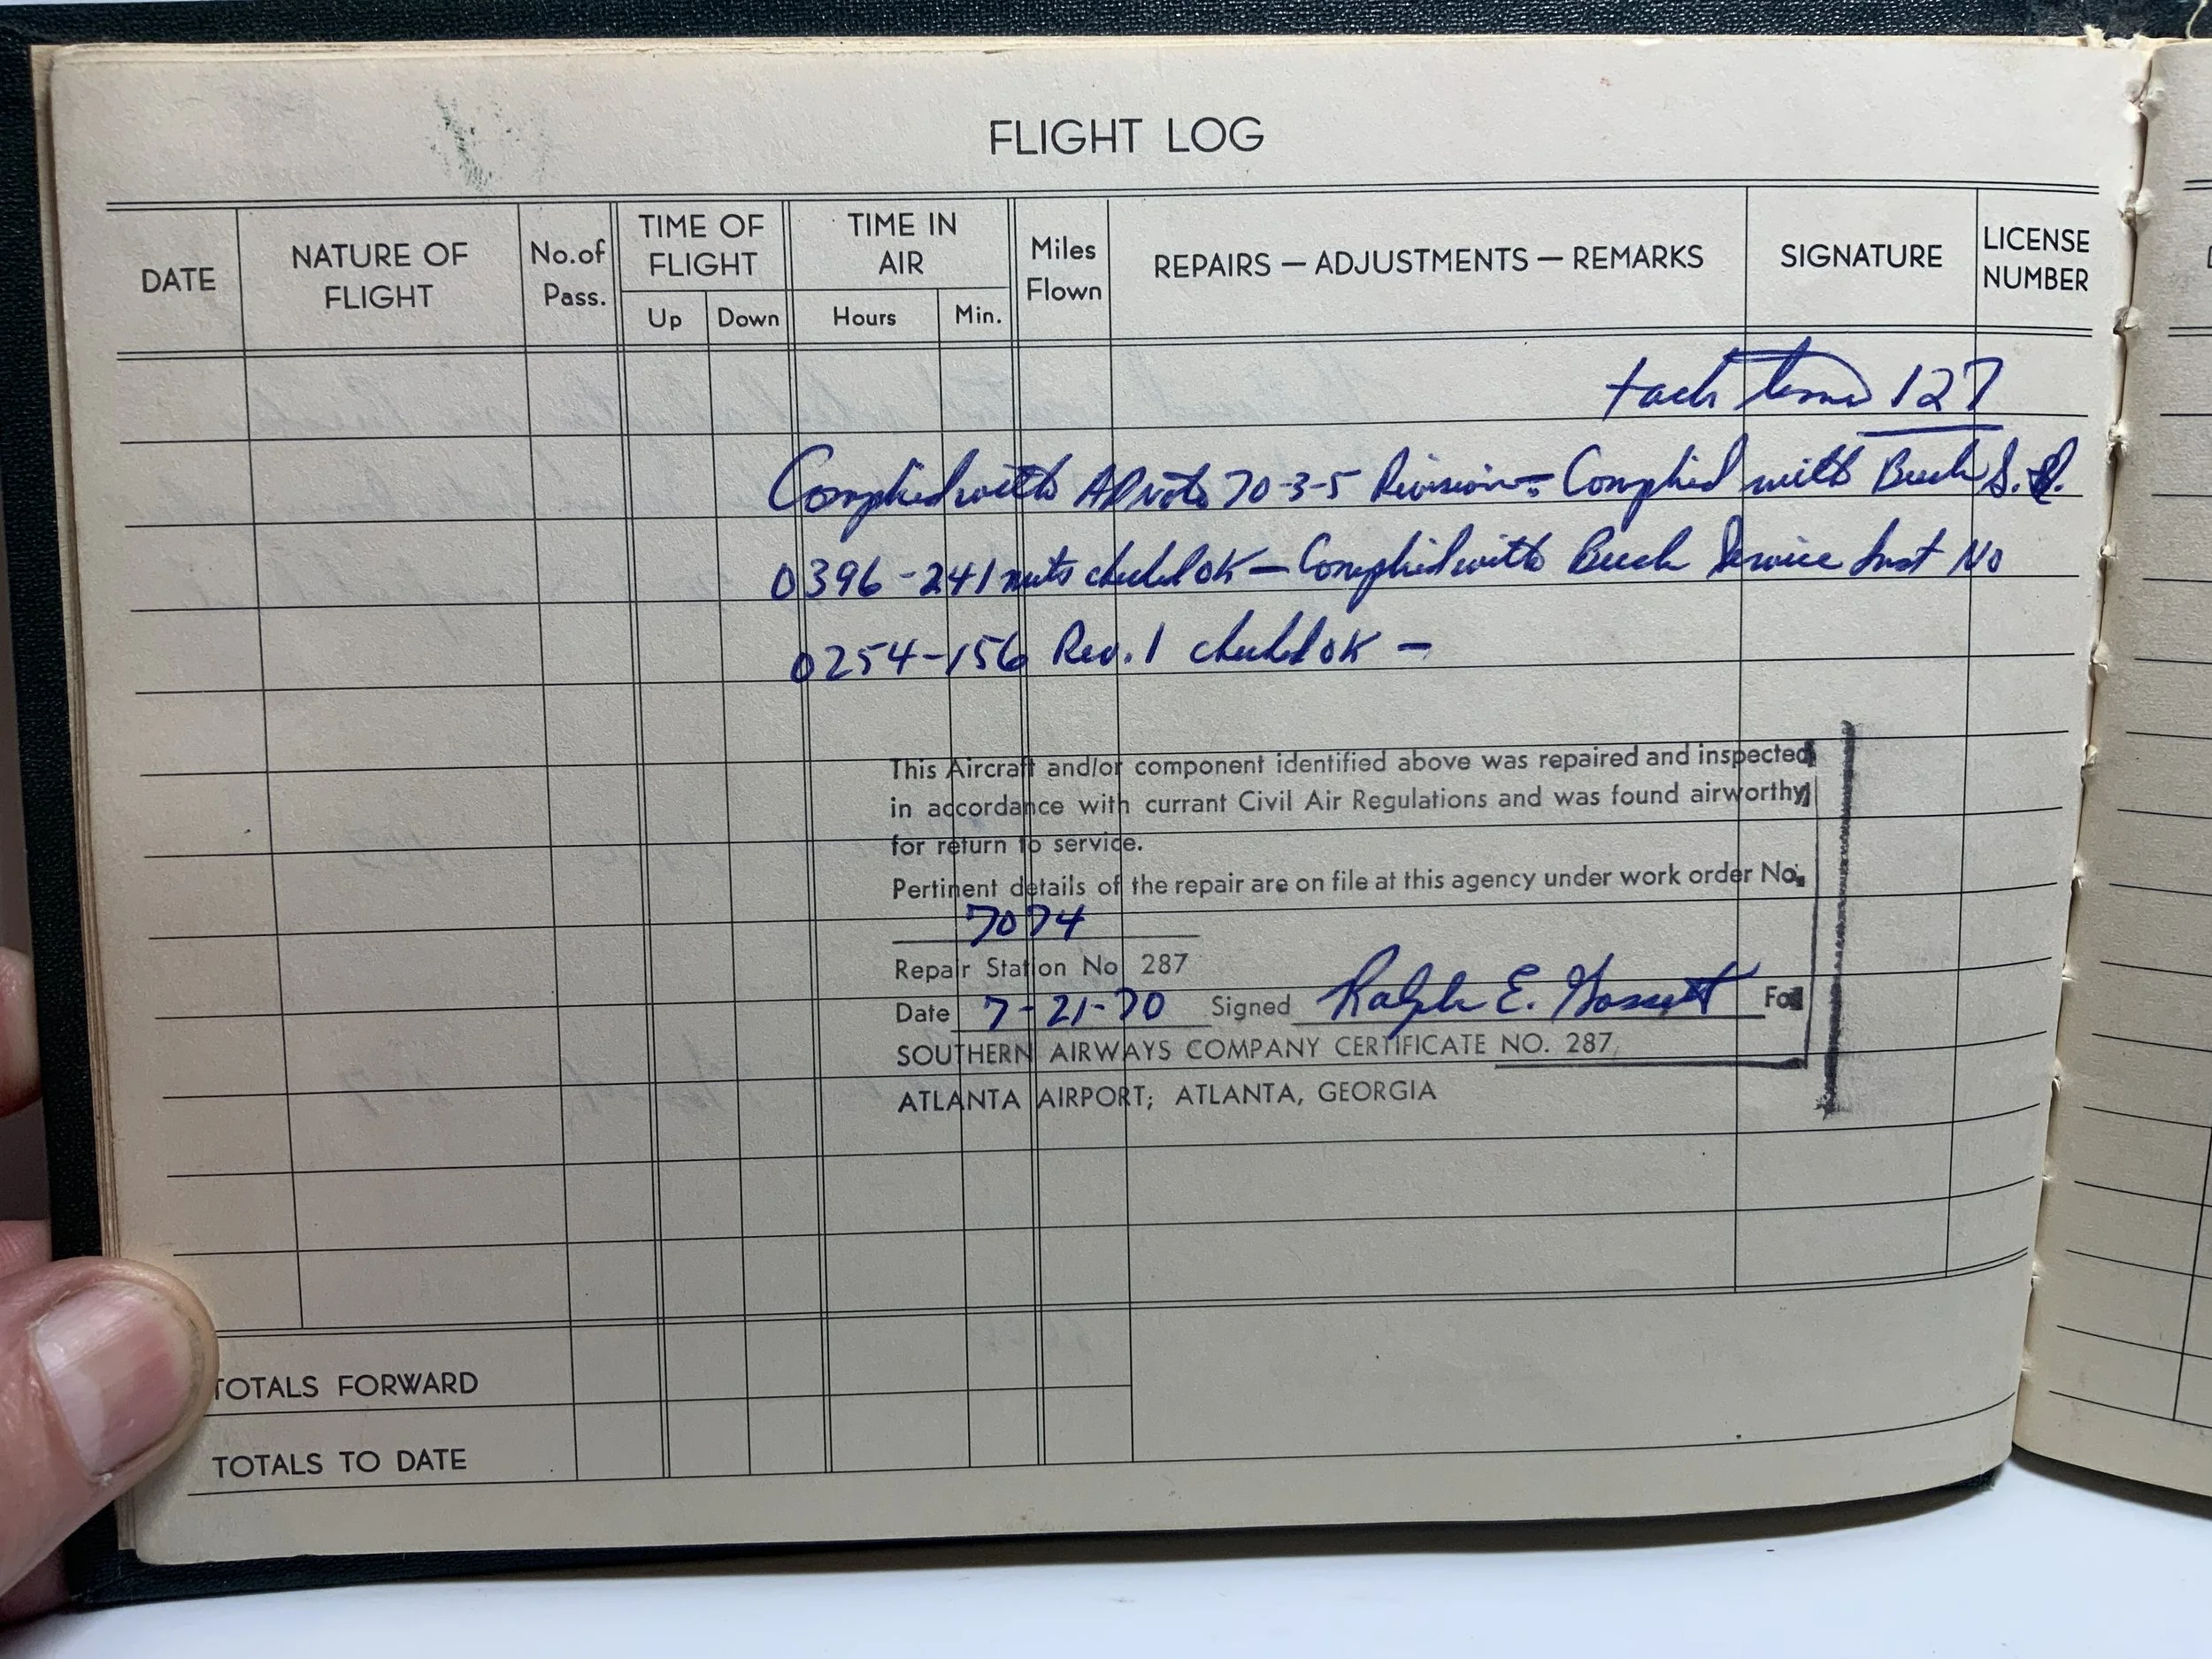 FLIGHT LOG
DATE NATURE OF FLIGHT No. of Pass. TIME OF FLIGHT TIME IN AIR Miles Flown REPAIRS — ADJUSTMENTS — REMARKS SIGNATURE LICENSE NUMBER
Up Down Hours Min.
tach time 127
Complied with AD note 70-3-5 Revision - Complied with Beech S.I.
0396-241 nuts checked OK — Complied with Beech Service Inst No
0254-156 Rev. 1 checked OK —
This Aircraft and/or component identified above was repaired and inspected
in accordance with currant Civil Air Regulations and was found airworthy
for return to service.
Pertinent details of the repair are on file at this agency under work order No.
7074
Repair Station No 287
Date 7-21-70 Signed Ralph E. Gossett For
SOUTHERN AIRWAYS COMPANY CERTIFICATE NO. 287
ATLANTA AIRPORT; ATLANTA, GEORGIA
TOTALS FORWARD
TOTALS TO DATE